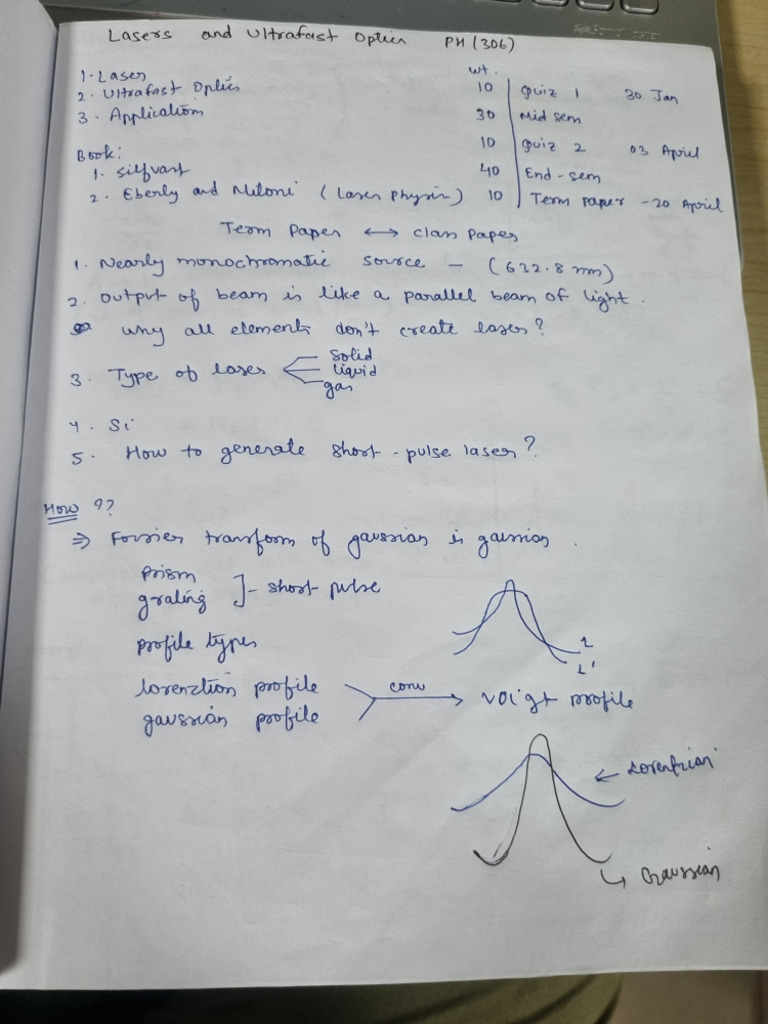 Lasers and Ultrafast Optics PH (306)
1. Laser
2. Ultrafast Optics
3. Applications
Book:
1. Silfvast
2. Eberly and Miloni (Laser Physics)
wt.
10 Quiz 1 30 Jan
30 Mid sem
10 Quiz 2 03 April
40 End-sem
10 Term Paper - 20 April
Term Paper ↔ class Paper
1. Nearly monochromatic source - (632.8 nm)
2. Output of beam is like a parallel beam of light.
Why all elements don't create laser?
3. Type of lases
solid
liquid
gas
4. Si
5. How to generate short-pulse laser?
How ??
⇒ Fourier transform of gaussian is gaussian.
prism
grating ]- short pulse
profile types
1
L'
lorenztion profile
gaussian profile
conv → voigt profile
← Lorentzian
↳ Gaussian